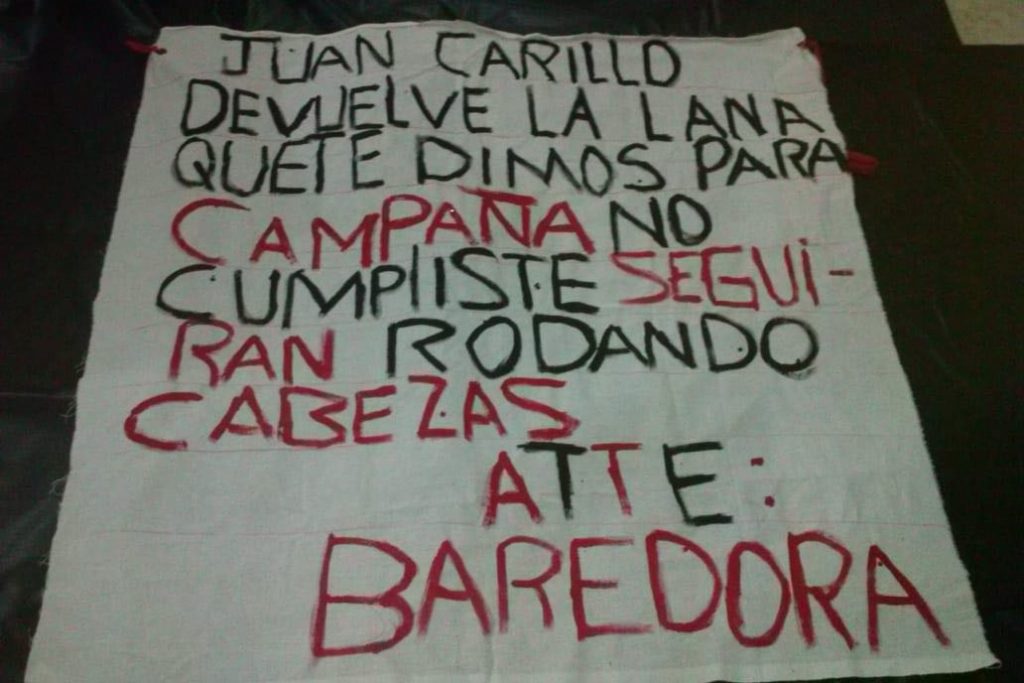 JUAN CARILLO
DEVUELVE LA LANA
QUETE DIMOS PARA
CAMPAÑA NO
CUMPlISTE SEGUi-
RAN RODANDO
CABEZAS
ATTE:
BAREDORA